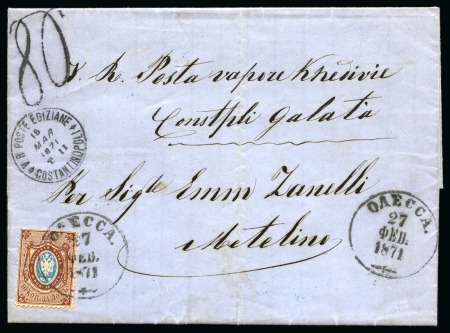 80
I. R. Posta vapore Khedivie
Constpli Galata
V. R. POSTE EGIZIANE
COSTANTINOPOLI
15
MAR
1871
T. 11
Per Sigle Emm Zanelli
Metelino
ОДЕССА.
27
ФЕВ.
1871
ОДЕССА.
27
ФЕВ.
1871